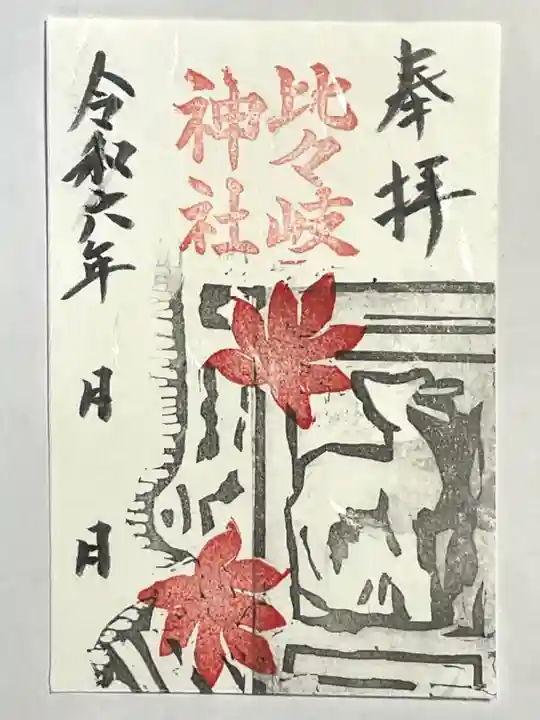 奉拝
比々岐
神社
令和六年 月 日